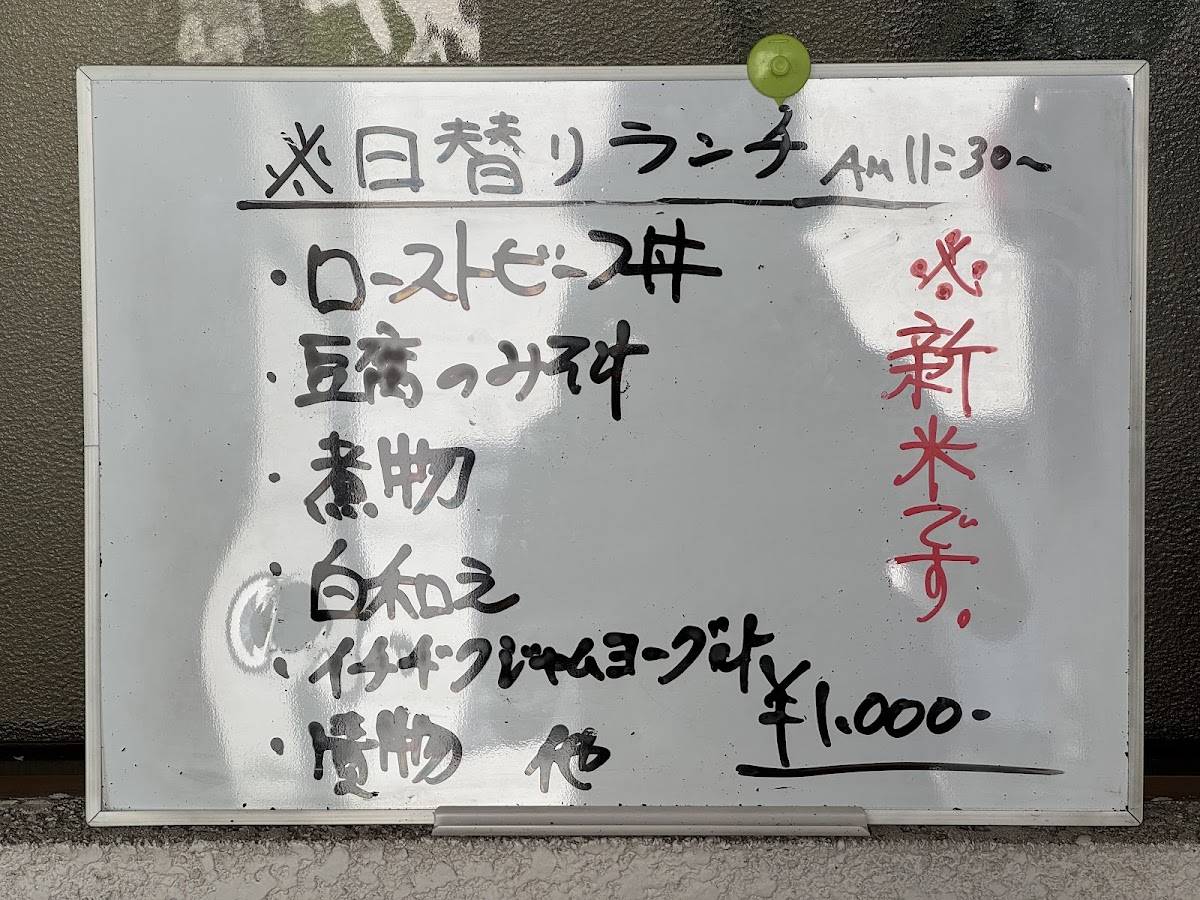 ※日替りランチ AM 11:30～
・ローストビーフ丼
・豆腐のみそ汁
・煮物
・白和え
・イチヂクジャムヨーグルト
・漬物 他
¥1.000-
※新米です。